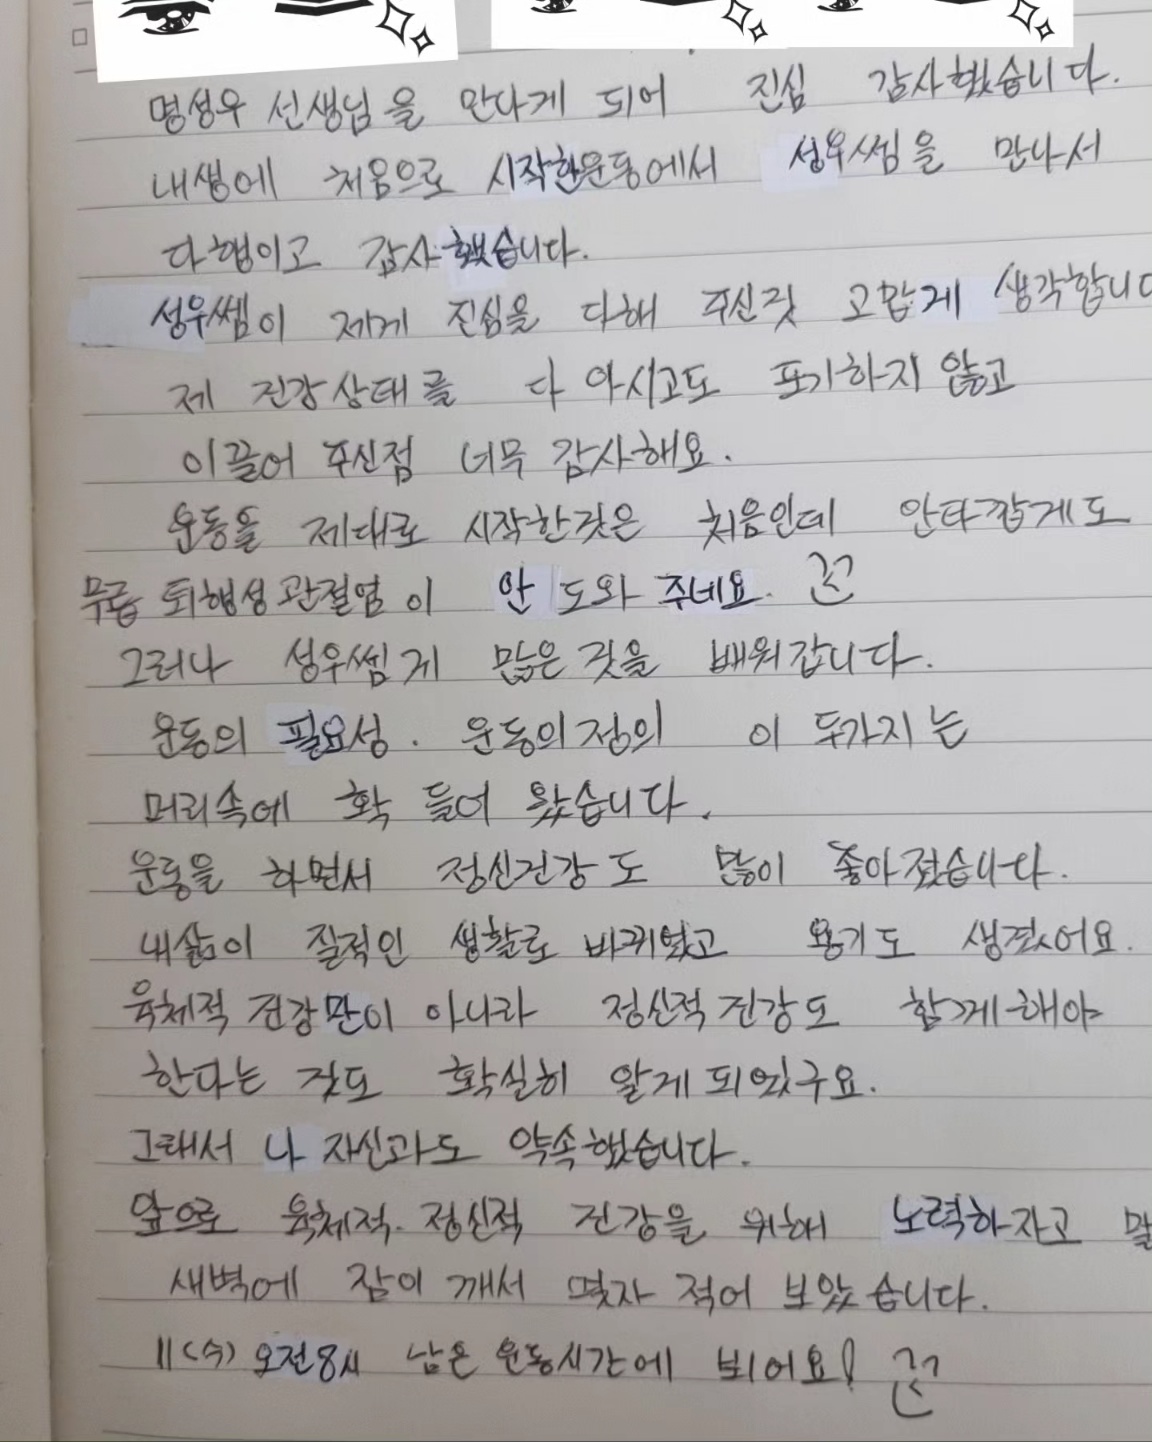 명성우 선생님을 만다게 되어 진심 감사했습니다.
내생에 처음으로 시작한운동에서 성우쌤을 만나서
다행이고 감사했습니다.
성우쌤이 제게 진심을 다해 주신것 고맙게 생각합니다
제 건강상태를 다 아시고도 포기하지 않고
이끌어 주신점 너무 감사해요.
운동을 제대로 시작한것은 처음인데 안타깝게도
무릎 퇴행성관절염이 안 도와 주네요.
그러나 성우쌤게 많은것을 배워갑니다.
운동의 필요성. 운동의정의 이 두가지는
머리속에 확 들어 왔습니다.
운동을 하면서 정신건강도 많이 좋아졌습니다.
내삶이 질적인 생활로 바뀌었고 용기도 생겼어요.
육체적 건강만이 아니라 정신적 건강도 함께해야
한다는 것도 확실히 알게되었구요.
그래서 나 자신과도 약속했습니다.
앞으로 육체적. 정신적 건강을 위해 노력하자고 말
새벽에 잠이 깨서 몇자 적어 보았습니다.
11(수) 오전8시 남은 운동시간에 뵈어요!